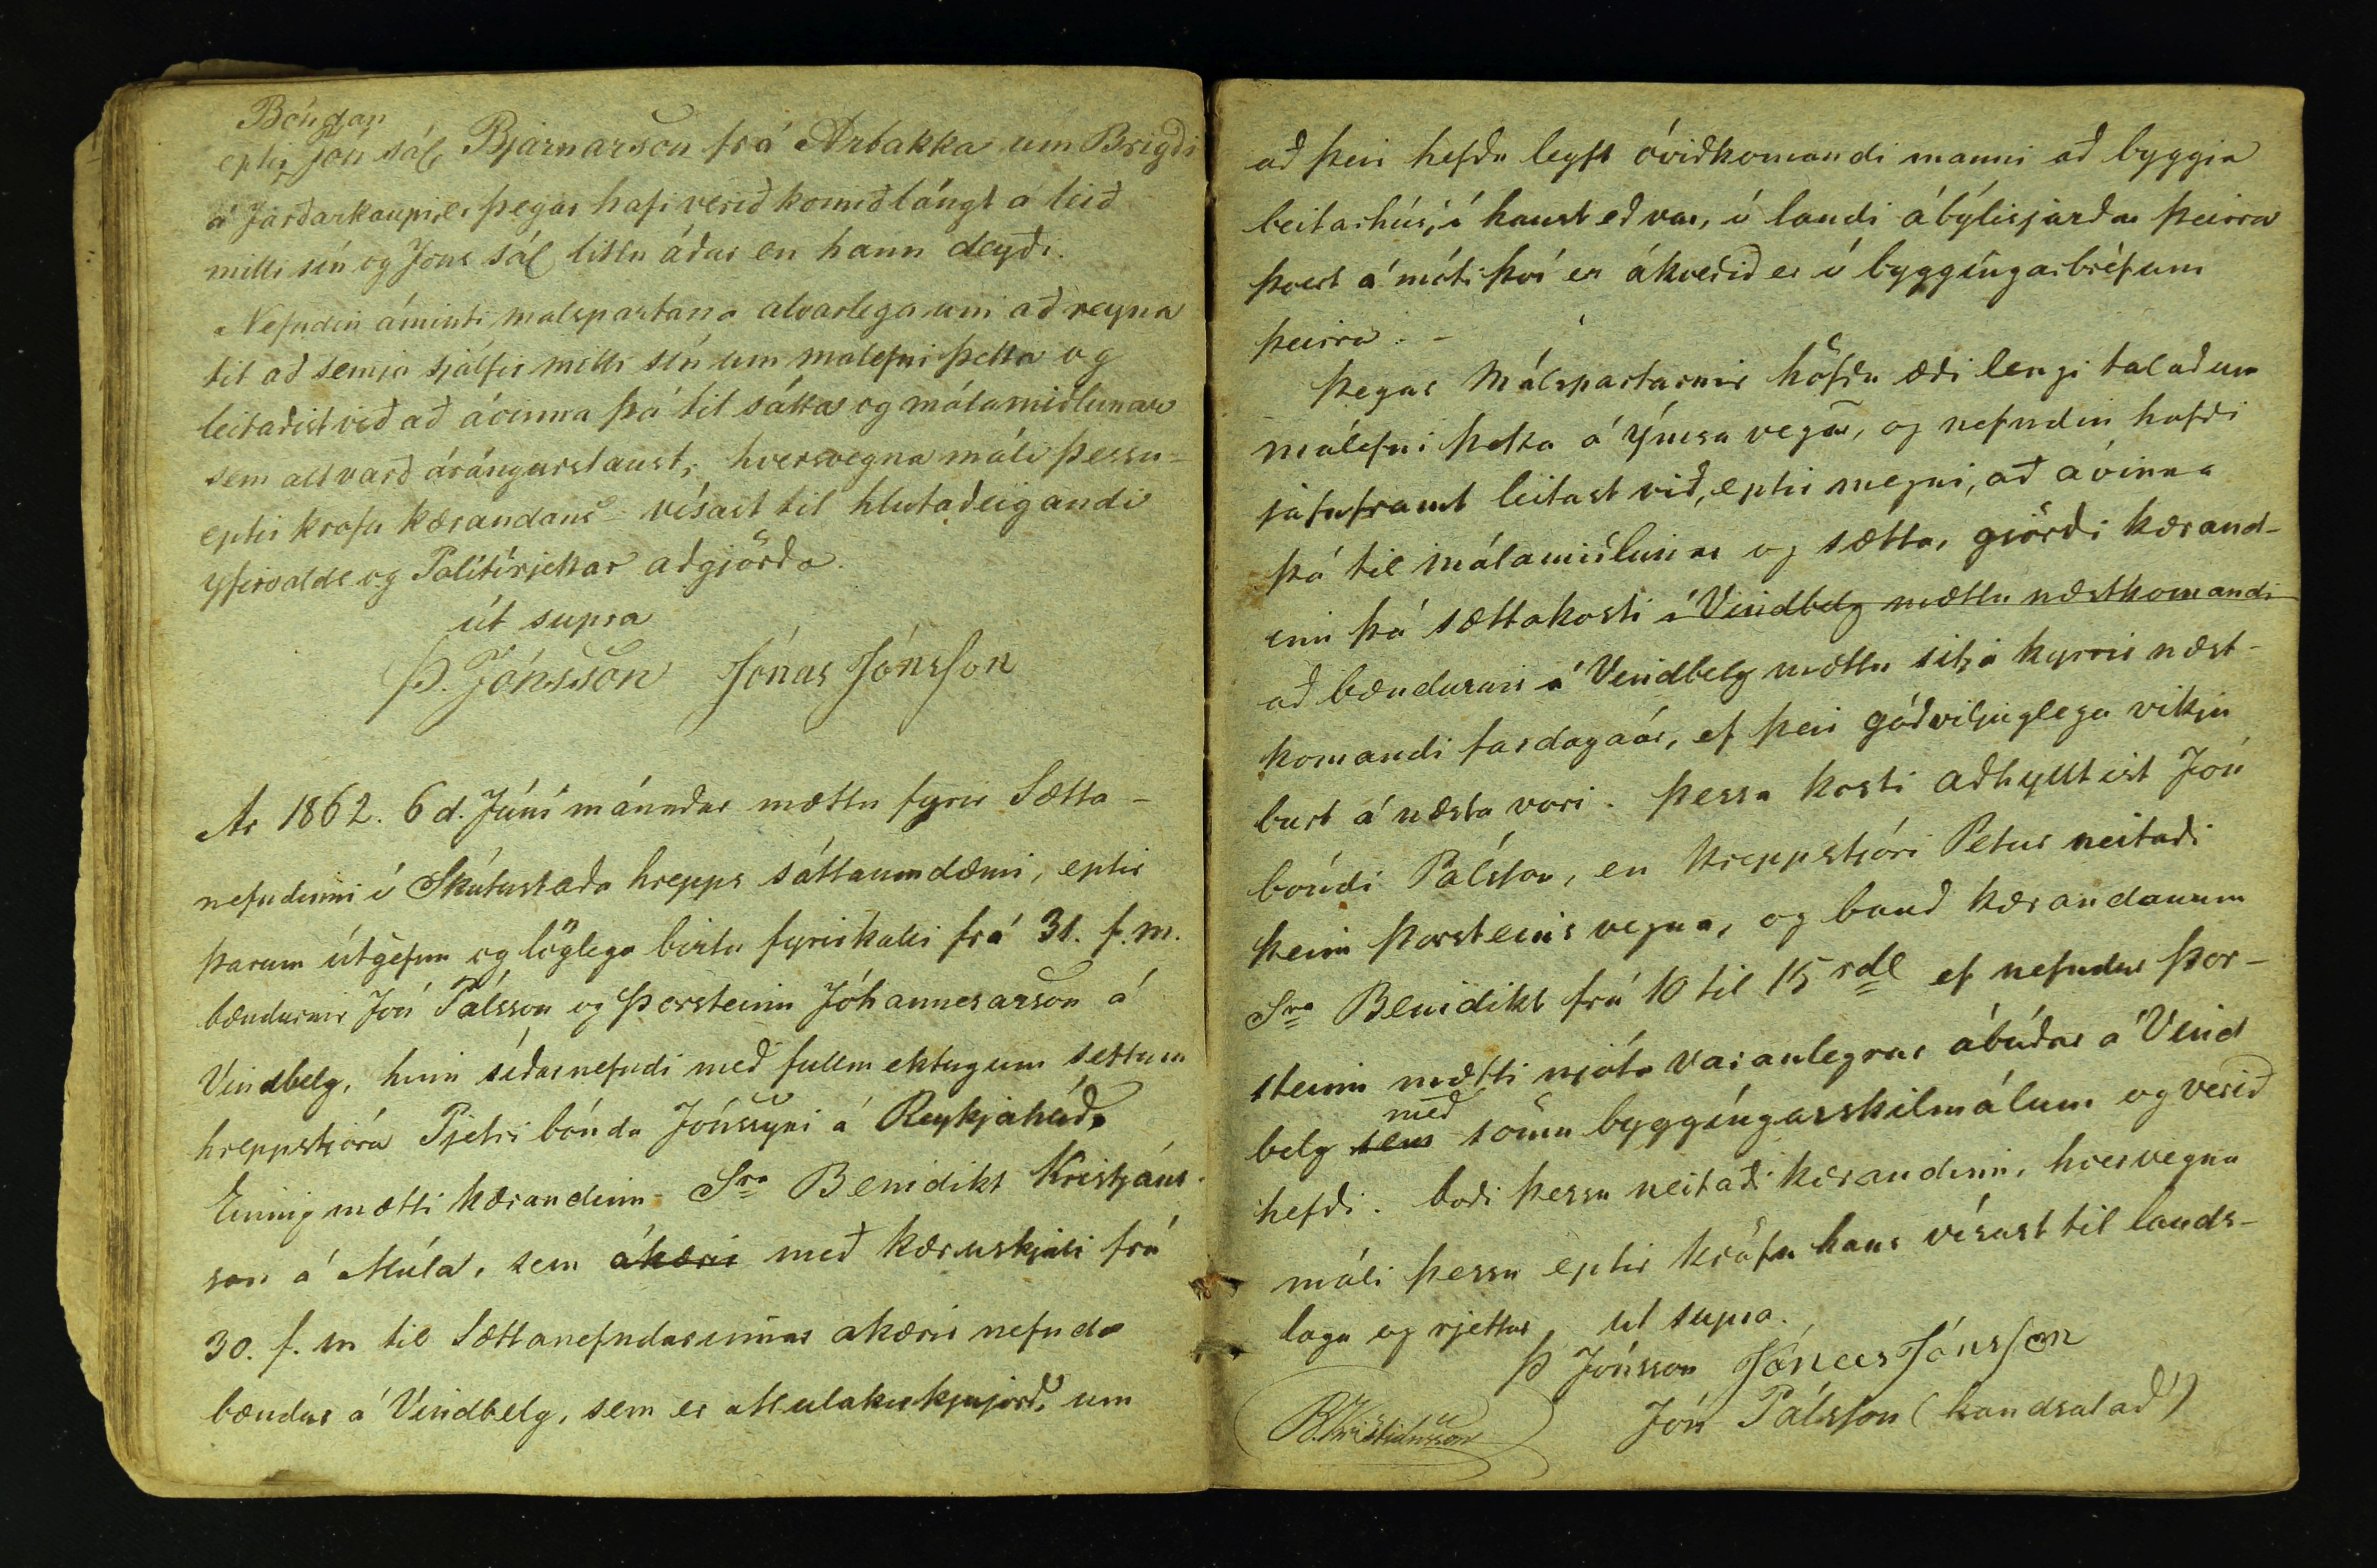 Bóndan
eptir Jón sál. Bjarnarson frá Árbakka um Brigði
á Jarðarkaupi, er þegar hafi verið komið lángt á leið
milli sín og Jóns sál litlu áður en hann deyði.
Nefndin áminti malspartana alvarlega um að reyna
til að semja sjálfir milli sín um malefni þetta og
leitaðist við að ávinna þá til sátta og málamiðlunar
sem allt varð árángurslaust, hversvegna máli þessu =
eptir krafu kærandans = vísast til hlutaðeigandi
yfirvalds og Politírjettar aðgjörða.
út supra
Þ. Jónsson Jónas Jónsson
Ár 1862. 6 d. Júní mánaðar mættu fyrir Sætta -
nefndinni í Skútustaða hrepps sáttaumdæmi, eptir
þarum útgefnu og löglega birtu fyrirkalli frá 31. f.m.
bændurnir Jón Pálsson og Þorsteinn Jóhannesarson á
Vindbelg, hinn síðarnefndi með fullmektugum settum
hreppstjóra Pjetri bónda Jónssyni á Reykjahlíð.
Einnig mætti kærandinn Sra Benidikt Kristjáns-
son á Múla, sem ákærir með kæruskjali frá
30. f. m til Sættanefndarinnar akærir nefnda
bændur á Vindbelg, sem er Mulakirkjujörð, um
að þeir hefðu leyft óviðkomandi manni að byggia
beitarhús, í haust eð var, í landi ábýlisjarðar þeirra
þvert á móti því er ákveðið er í byggíngarbréfum
þeirra. -
Þegar Málspartarnir höfðu æði lengi talað um
málefni þetta á ýmsa vegu, og nefndin hafði
jafnframt leitast við, eptir megni, að ávinna
þá til málamiðlunar og sætta, giörði kærand-
inn þá sættakosti í Vindbelg mættu næstkomandi
að bændurnir á Vindbelg mættu sitja kyrrir næst-
komandi fardagaár, ef þeir góðviljuglega vikju
burt á næsta vori. Þessa kosti aðhylltist Jón
bóndi Pálsson, en hreppstjóri Petur neitaði
þeim Þorsteins vegna, og bauð kærandanum
Sra Benidikt frá 10 til 15 rdl ef nefndur Þor-
steinn mætti njóta varanlegrar ábúðar á Vind
með
belg sem sömu byggíngarskilmálum og verið
hefði. boði þessu neitaði kærandinn, hversvegna
máli þessu eptir kröfu hans vísast til lands-
laga og rjettar, ut supra.
Þ Jónsson Jónas Jónsson
B. Kristiánsson Jón Pálsson (handsalað)